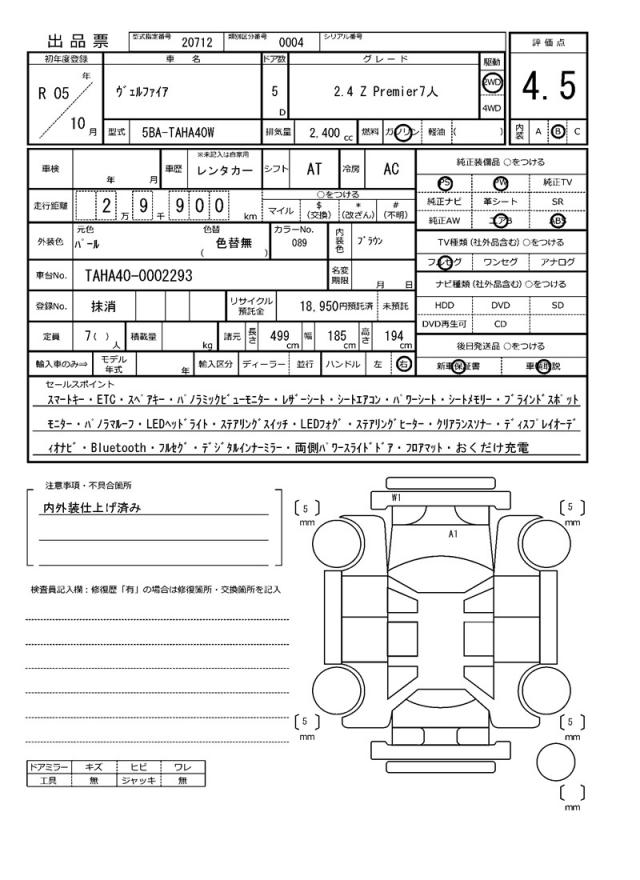 出品票 型式指定番号 20712 類別区分番号 0004 シリアル番号
初年度登録 車名 ドア数 グレード 駆動 評価点
R 05 年 10 月 ヴェルファイア 5 D 2.4 Z Premier7人 2WD 4WD 4.5
型式 5BA-TAHA40W 排気量 2,400 cc 燃料 ガソリン 軽油 ( ) 内装 A B C
車検 年 月 車歴 ※未記入は自家用 レンタカー シフト AT 冷房 AC 純正装備品 ○をつける
PS PW 純正TV
走行距離 2 万 9 千 9 0 0 km ○をつける 純正ナビ 革シート SR
マイル $ (交換) * (改ざん) # (不明) 純正AW エアB ABS
外装色 元色 パール 色替 色替無 ( ) カラーNo. 089 内装色 ブラウン TV種類(社外品含む)○をつける
フルセグ ワンセグ アナログ
車台No. TAHA40-0002293 名変期限 月 日 ナビ種類(社外品含む)○をつける
登録No. 抹消 リサイクル預託金 18,950円預託済 未預託 HDD DVD SD
DVD再生可 CD
定員 7( ) 人 積載量 kg 諸元 長さ 499 cm 幅 185 cm 高さ 194 cm 後日発送品 ○をつける
輸入車のみ⇒ モデル年式 年 輸入区分 ディーラー 並行 ハンドル 左 右 新車保証書 車輌取説
セールスポイント
スマートキー・ETC・スペアキー・パノラミックビューモニター・レザーシート・シートエアコン・パワーシート・シートメモリー・ブラインドスポット
モニター・パノラマルーフ・LEDヘッドライト・ステアリングスイッチ・LEDフォグ・ステアリングヒーター・クリアランスソナー・ディスプレイオーデ
ィオナビ・Bluetooth・フルセグ・デジタルインナーミラー・両側パワースライドドア・フロアマット・おくだけ充電
注意事項・不具合箇所
内外装仕上げ済み
W1
A1
[ 5 ] mm
[ 5 ] mm
検査員記入欄:修復歴「有」の場合は修復箇所・交換箇所を記入
[ 5 ] mm
[ 5 ] mm
ドアミラー キズ ヒビ ワレ
工具 無 ジャッキ 無
[ ] mm